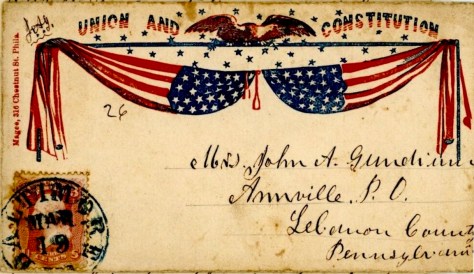 UNION AND CONSTITUTION
Magee, 316 Chestnut St. Phila.
26
Mrs. John A.
Annville, P. O.
Lebanon County
Pennsylvania
BALTIMORE
MAR
19